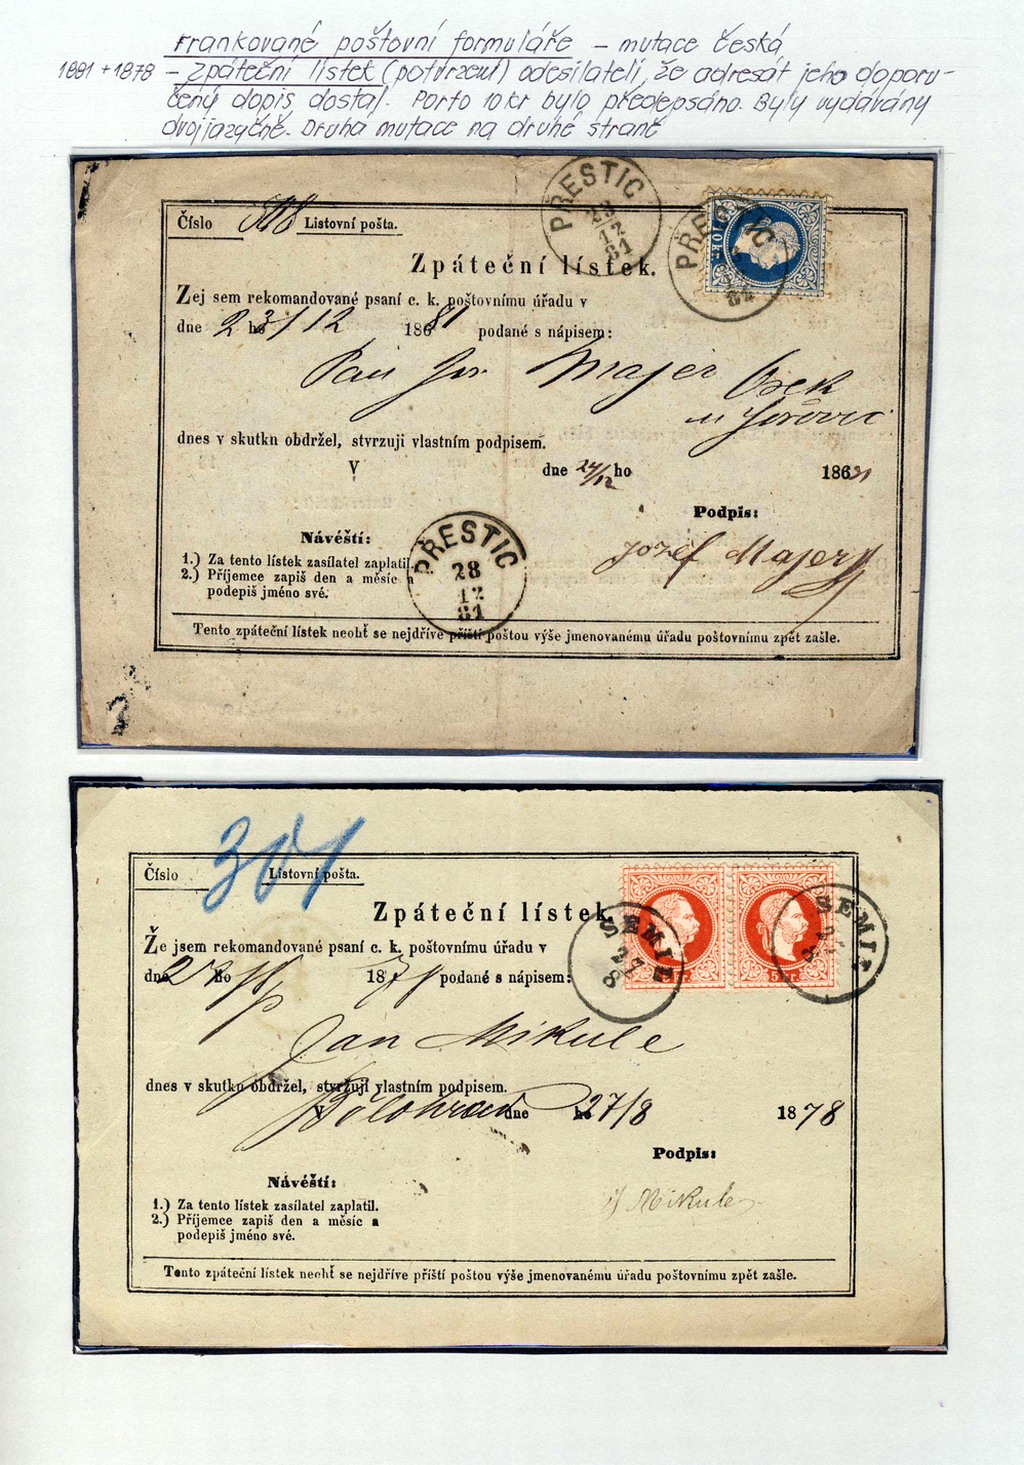 Frankované poštovní formuláře – mutace česká
1881 + 1878 – Zpáteční lístek (potvrzení) odesílateli, že adresát jeho doporu-
čený dopis dostal. Porto 10 kr bylo předepsáno. Byly vydávány
dvojjazyčně. Druhá mutace na druhé straně
PŘESTIC
12
81
PŘESTIC
10 kr.
Číslo Listovní pošta.
Zpáteční lístek.
Zej sem rekomandované psaní c. k. poštovnímu úřadu v
dne 23/12 ho 186 81 podané s nápisem:
Majer Osek
dnes v skutku obdržel, stvrzuji vlastním podpisem.
V dne 24/12 ho 186 81
Podpis:
Návěští:
Jozef Majer
1.) Za tento lístek zasílatel zaplatil.
2.) Příjemce zapiš den a měsíc a
podepiš jméno své.
PŘESTIC
28
12
81
Tento zpáteční lístek nechť se nejdříve příští poštou výše jmenovanému úřadu poštovnímu zpět zašle.
301
Číslo Listovní pošta.
Zpáteční lístek.
SEMIL
27
8
SEMIL
5 kr.
Že jsem rekomandované psaní c. k. poštovnímu úřadu v
dne ho 187 podané s nápisem:
Jan Mikule
dnes v skutku obdržel, stvrzuji vlastním podpisem.
V Bělohrad dne ho 27/8 1878
Podpis:
Návěští:
Mikule
1.) Za tento lístek zasílatel zaplatil.
2.) Příjemce zapiš den a měsíc a
podepiš jméno své.
Tento zpáteční lístek nechť se nejdříve příští poštou výše jmenovanému úřadu poštovnímu zpět zašle.